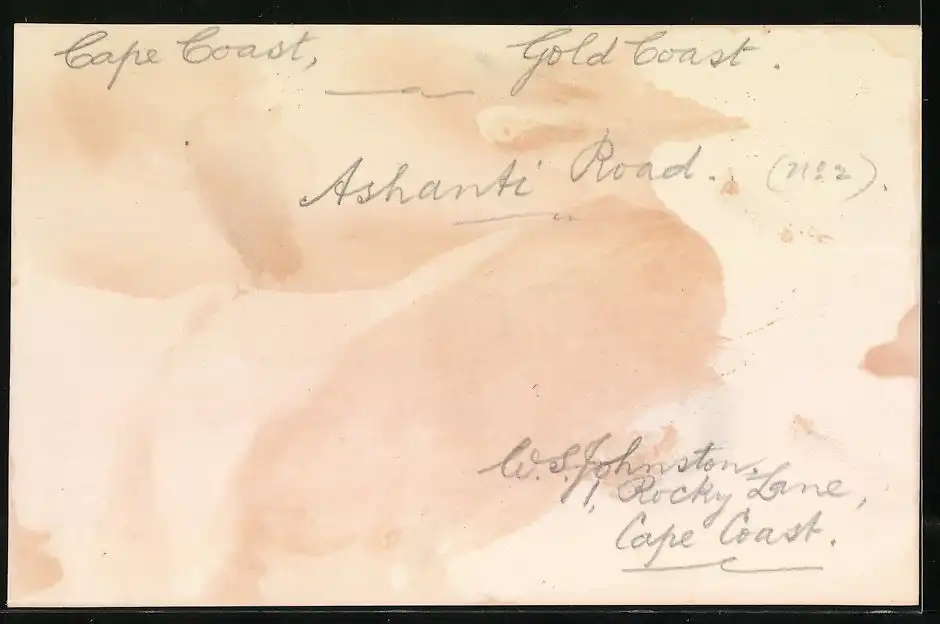 Cape Coast, Gold Coast.
Ashanti Road. (No 2).
W. S. Johnston,
1, Rocky Lane,
Cape Coast.